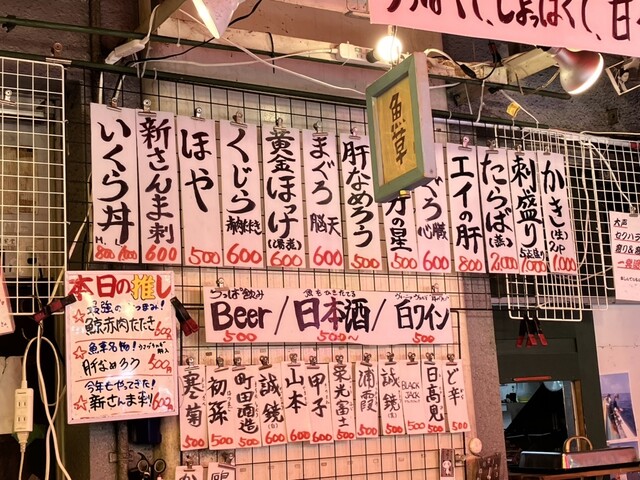 魚草
かき(生)
2P
1,000
刺盛り
5点盛り
1,000
たらば(蒸)
2,000
エイの肝
800
ぐろ
心臓
600
万の星
500
肝なめろう
500
まぐろ
脳天
600
黄金ほっけ
600
くじら
600
ほや
500
新さんま刺
600
いくら丼
本日の推し
最強のつまみ!
鯨赤肉たたき 600
魚草名物!
肝なめろう 500円
今年もやってきた!
新さんま刺 600
Beer/日本酒/白ワイン
500 500〜 500
ど辛
500
日高見
500
BLACK JACK
500
誠鏡
500
浦霞
500
栄光冨士
500
甲子
600
山本
600
誠鏡
600
町田酒造
500
初孫
500
寒菊
500
大声